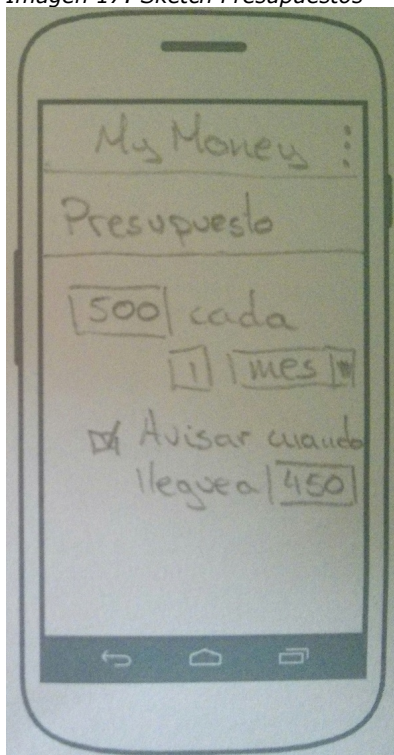 Imagen 17: Sketch Presupuestos
My Money
Presupuesto
500 cada
1 mes
Avisar cuando
llegue a 450